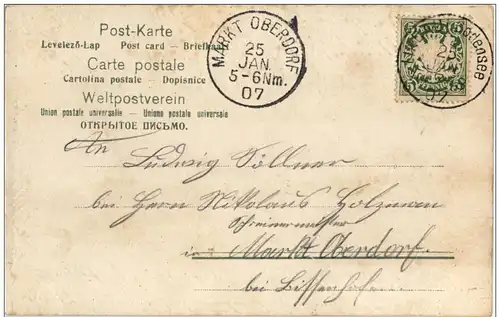 Post-Karte
Levelező-Lap Post card – Briefkaart
Carte postale
Cartolina postale – Dopisnice
Weltpostverein
Union postale universelle – Unione postale universale
ОТКРЫТОЕ ПИСЬМО.
MARKT OBERDORF
25
JAN.
5-6Nm.
07
Bodensee
25
07
5 5
An
Ludwig Söllner
bei Herrn Nikolaus
Schreinermeister
in Markt Oberdorf.
bei Bissenhofen.